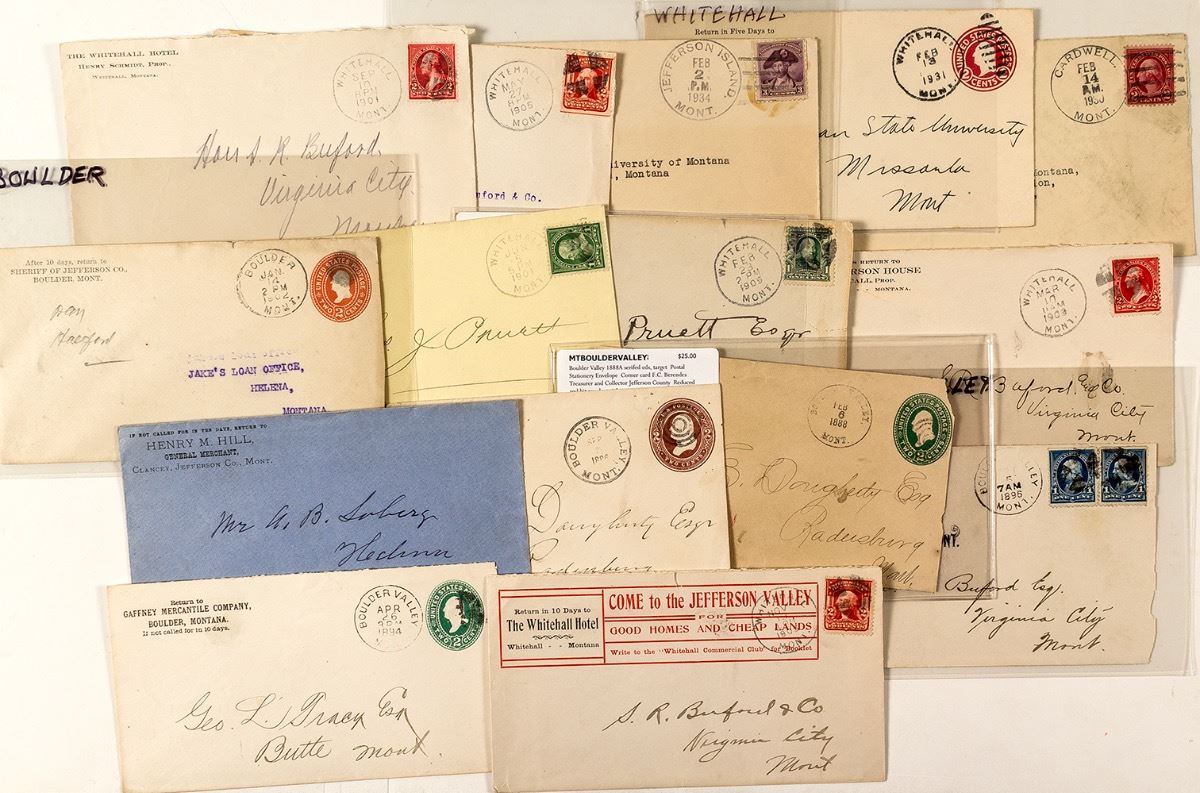 WHITEHALL
Return in Five Days to
THE WHITEHALL HOTEL
HENRY SCHMIDT, PROP.,
WHITEHALL, MONTANA.
WHITEHALL
SEP
1901
MONT.
Hon S. R. Buford
Virginia City
WHITEHALL
1905
MONT.
uford & Co.
JEFFERSON ISLAND.
FEB
2
P.M.
1934
MONT.
niversity of Montana
, Montana
WHITEHALL
FEB
13
1931
MONT.
UNITED STATES POSTAGE
2 CENTS 2
an State University
Missoula
Mont
CARDWELL,
FEB
14
A.M.
1930
MONT.
Montana,
ion,
BOULDER
After 10 days, return to
SHERIFF OF JEFFERSON CO.,
BOULDER, MONT.
BOULDER
JAN.
14
2 PM
1902
MONT.
UNITED STATES POSTAGE
TWO CENTS
JAKE'S LOAN OFFICE,
HELENA,
MONTANA
WHITEHALL
MONT.
J Pruett
WHITEHALL
FEB
1905
MONT.
Pruett Esqr
RETURN TO
ERSON HOUSE
ALL, PROP.
- MONTANA.
WHITEHALL
MAR
MONT.
Buford & Co.
Virginia City
Mont.
MTBOULDERVALLEY:
$25.00
Boulder Valley 1888A serifed cds, target Postal
Stationery Envelope Corner card F.C. Berendes
Treasurer and Collector Jefferson County Reduced
LEY
IF NOT CALLED FOR IN TEN DAYS, RETURN TO
HENRY M. HILL,
GENERAL MERCHANT,
CLANCEY, JEFFERSON CO., MONT.
Mr A. B. Soberg
BOULDER VALLEY.
SEP
MONT.
TWO CENTS
Dougherty Esqr
Radersburg
FEB
6
1888
MONT.
B. Dougherty Esq
Radersburg
Mont.
BOULDER VALLEY
7AM
1896
MONT.
ONE CENT
ONE CENT
NT.
Buford Esq.
Virginia City
Mont.
Return to
GAFFNEY MERCANTILE COMPANY,
BOULDER, MONTANA.
If not called for in 10 days.
BOULDER VALLEY
APR
1894
UNITED STATES
TWO 2 CENTS
Geo. L. Tracy Esq
Butte Mont.
Return in 10 Days to
The Whitehall Hotel
Whitehall - - Montana
COME to the JEFFERSON VALLEY
FOR
GOOD HOMES AND CHEAP LANDS
Write to the "Whitehall Commercial Club" for Booklet
S. R. Buford & Co
Virginia City
Mont